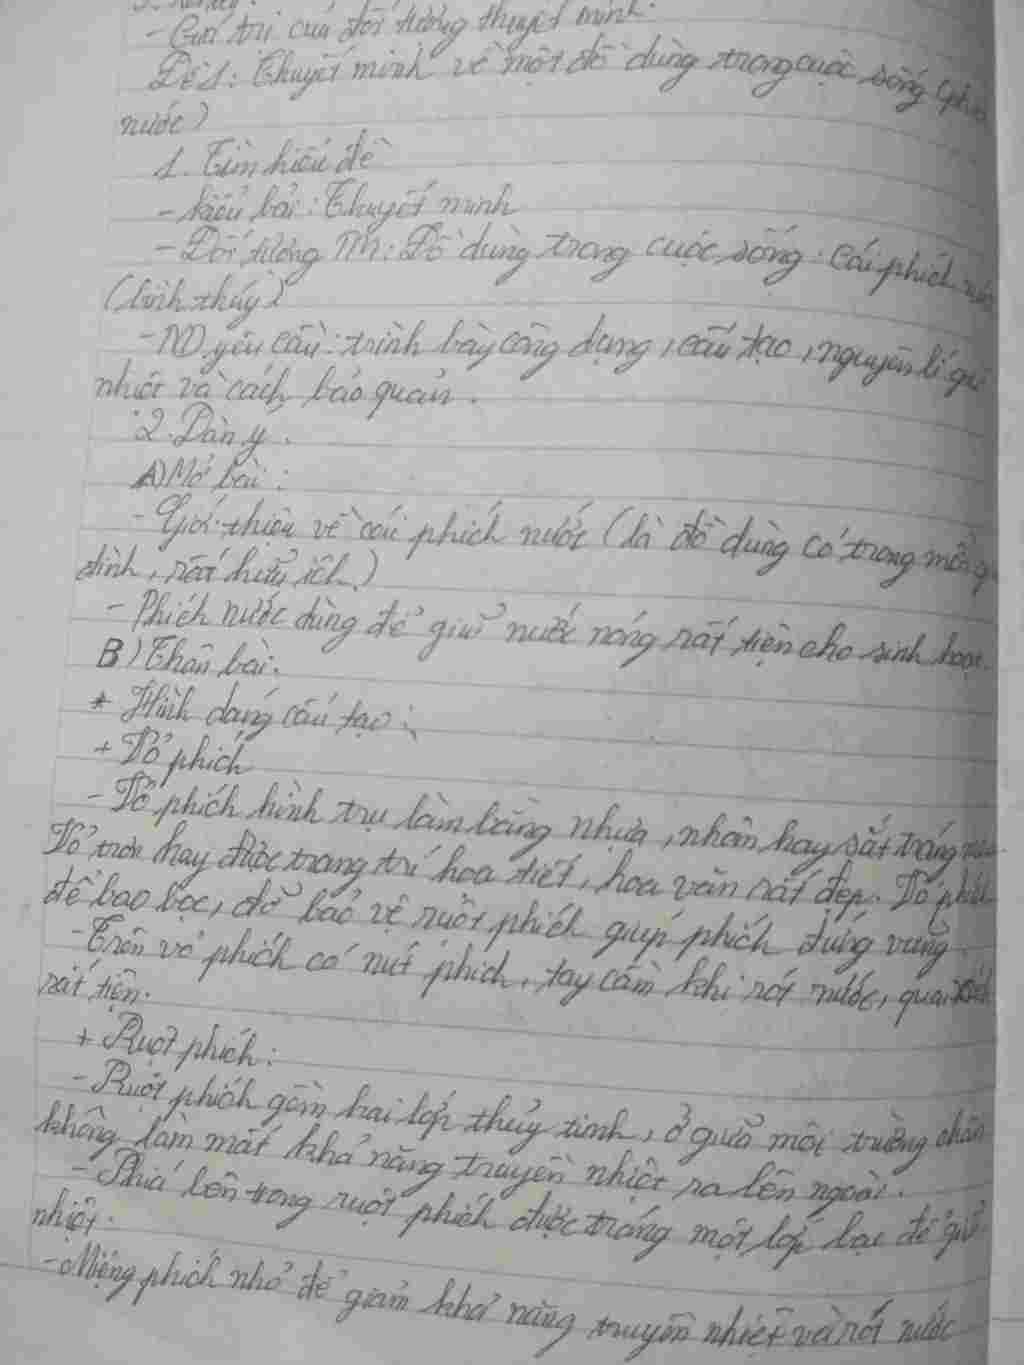 - Giá trị của đối tượng thuyết minh.
Đề 1: Thuyết minh về một đồ dùng trong cuộc sống (phích
nước)
1. Tìm hiểu đề
- kiểu bài: Thuyết minh
- Đối tượng TM: Đồ dùng trong cuộc sống: Cái phích nước
(bình thủy)
- ND yêu cầu: trình bày công dụng, cấu tạo, nguyên lí giữ
nhiệt và cách bảo quản.
2. Dàn ý.
A) Mở bài:
- Giới thiệu về cái phích nước (là đồ dùng có trong mỗi g
đình, rất hữu ích)
- Phích nước dùng để giữ nước nóng rất tiện cho sinh hoạt.
B) Thân bài.
* Hình dạng cấu tạo:
+ Vỏ phích
- Vỏ phích hình trụ làm bằng nhựa, nhôm hay sắt tráng
Vỏ trơn hay được trang trí hoạ tiết, hoa văn rất đẹp. Vỏ phích
để bao bọc, đỡ bảo vệ ruột phích giúp phích đứng vững.
- Trên vỏ phích có nút phích, tay cầm khi rót nước, quai xách
rất tiện.
+ Ruột phích:
- Ruột phích gồm hai lớp thủy tinh, ở giữa môi trường chân
không làm mất khả năng truyền nhiệt ra bên ngoài.
- Phía bên trong ruột phích được tráng một lớp bạc để giữ
nhiệt.
- Miệng phích nhỏ để giảm khả năng truyền nhiệt và rót nước